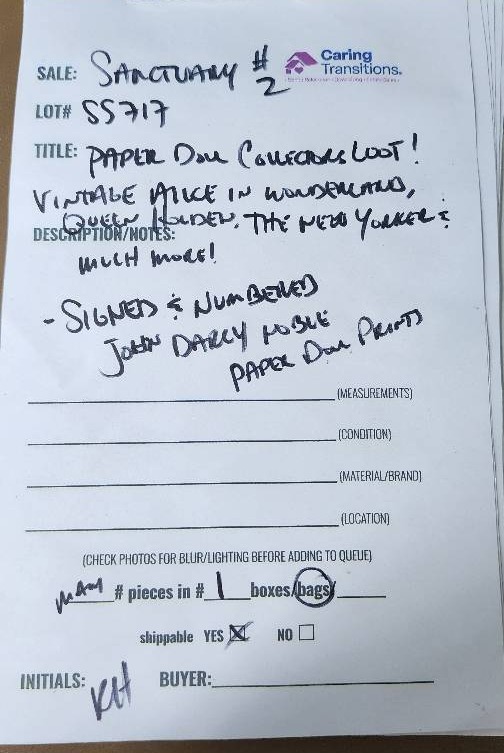 SALE: SANCTUARY #2
Caring Transitions®
LOT# SS717
TITLE: PAPER DOLL COLLECTORS LOOT!
VINTAGE ALICE IN WONDERLAND,
QUEEN HOLDEN, THE NEW YORKER &
DESCRIPTION/NOTES:
MUCH MORE!
- SIGNED & NUMBERED
JOHN DARCY NOBLE
PAPER DOLL PRINTS
(MEASUREMENTS)
(CONDITION)
(MATERIAL/BRAND)
(LOCATION)
(CHECK PHOTOS FOR BLUR/LIGHTING BEFORE ADDING TO QUEUE)
MANY # pieces in # 1 boxes/bags/
shippable YES ☒ NO ☐
INITIALS: KH BUYER: